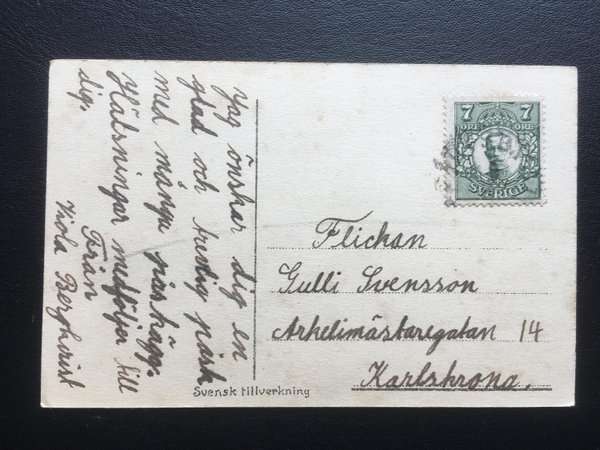 Jag önskar dig en
glad och fredig påsk
med många påskägg.
Hälsningar medföljer till
dig.
Från
Viola Bergkvist
7 7
ÖRE ÖRE
SVERIGE
Flickan
Gulli Svensson
Arkelimästaregatan 14
Karlskrona.
Svensk tillverkning